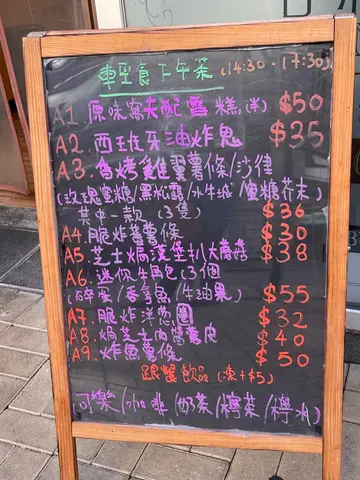 輕食下午茶 (14:30 - 17:30)
A1. 原味窩夫配雪糕(半) $50
A2. 西班牙油炸鬼 $35
A3. 香烤雞翼薯條/沙律
(玫瑰蜜糖/黑松露/水牛城/蜜糖芥末)
其中一款 (3隻) $36
A4. 脆炸薯條 $30
A5. 芝士焗漢堡扒大蘑菇 $38
A6. 迷你牛角包(3個)
(碎蛋/吞拿魚/牛油果) $55
A7. 脆炸洋葱圈 $32
A8. 焗芝士肉醬薯皮 $40
A9. 炸魚薯條 $50
跟餐飲品 (凍+$5)
可樂/咖啡/奶茶/檸茶/檸水